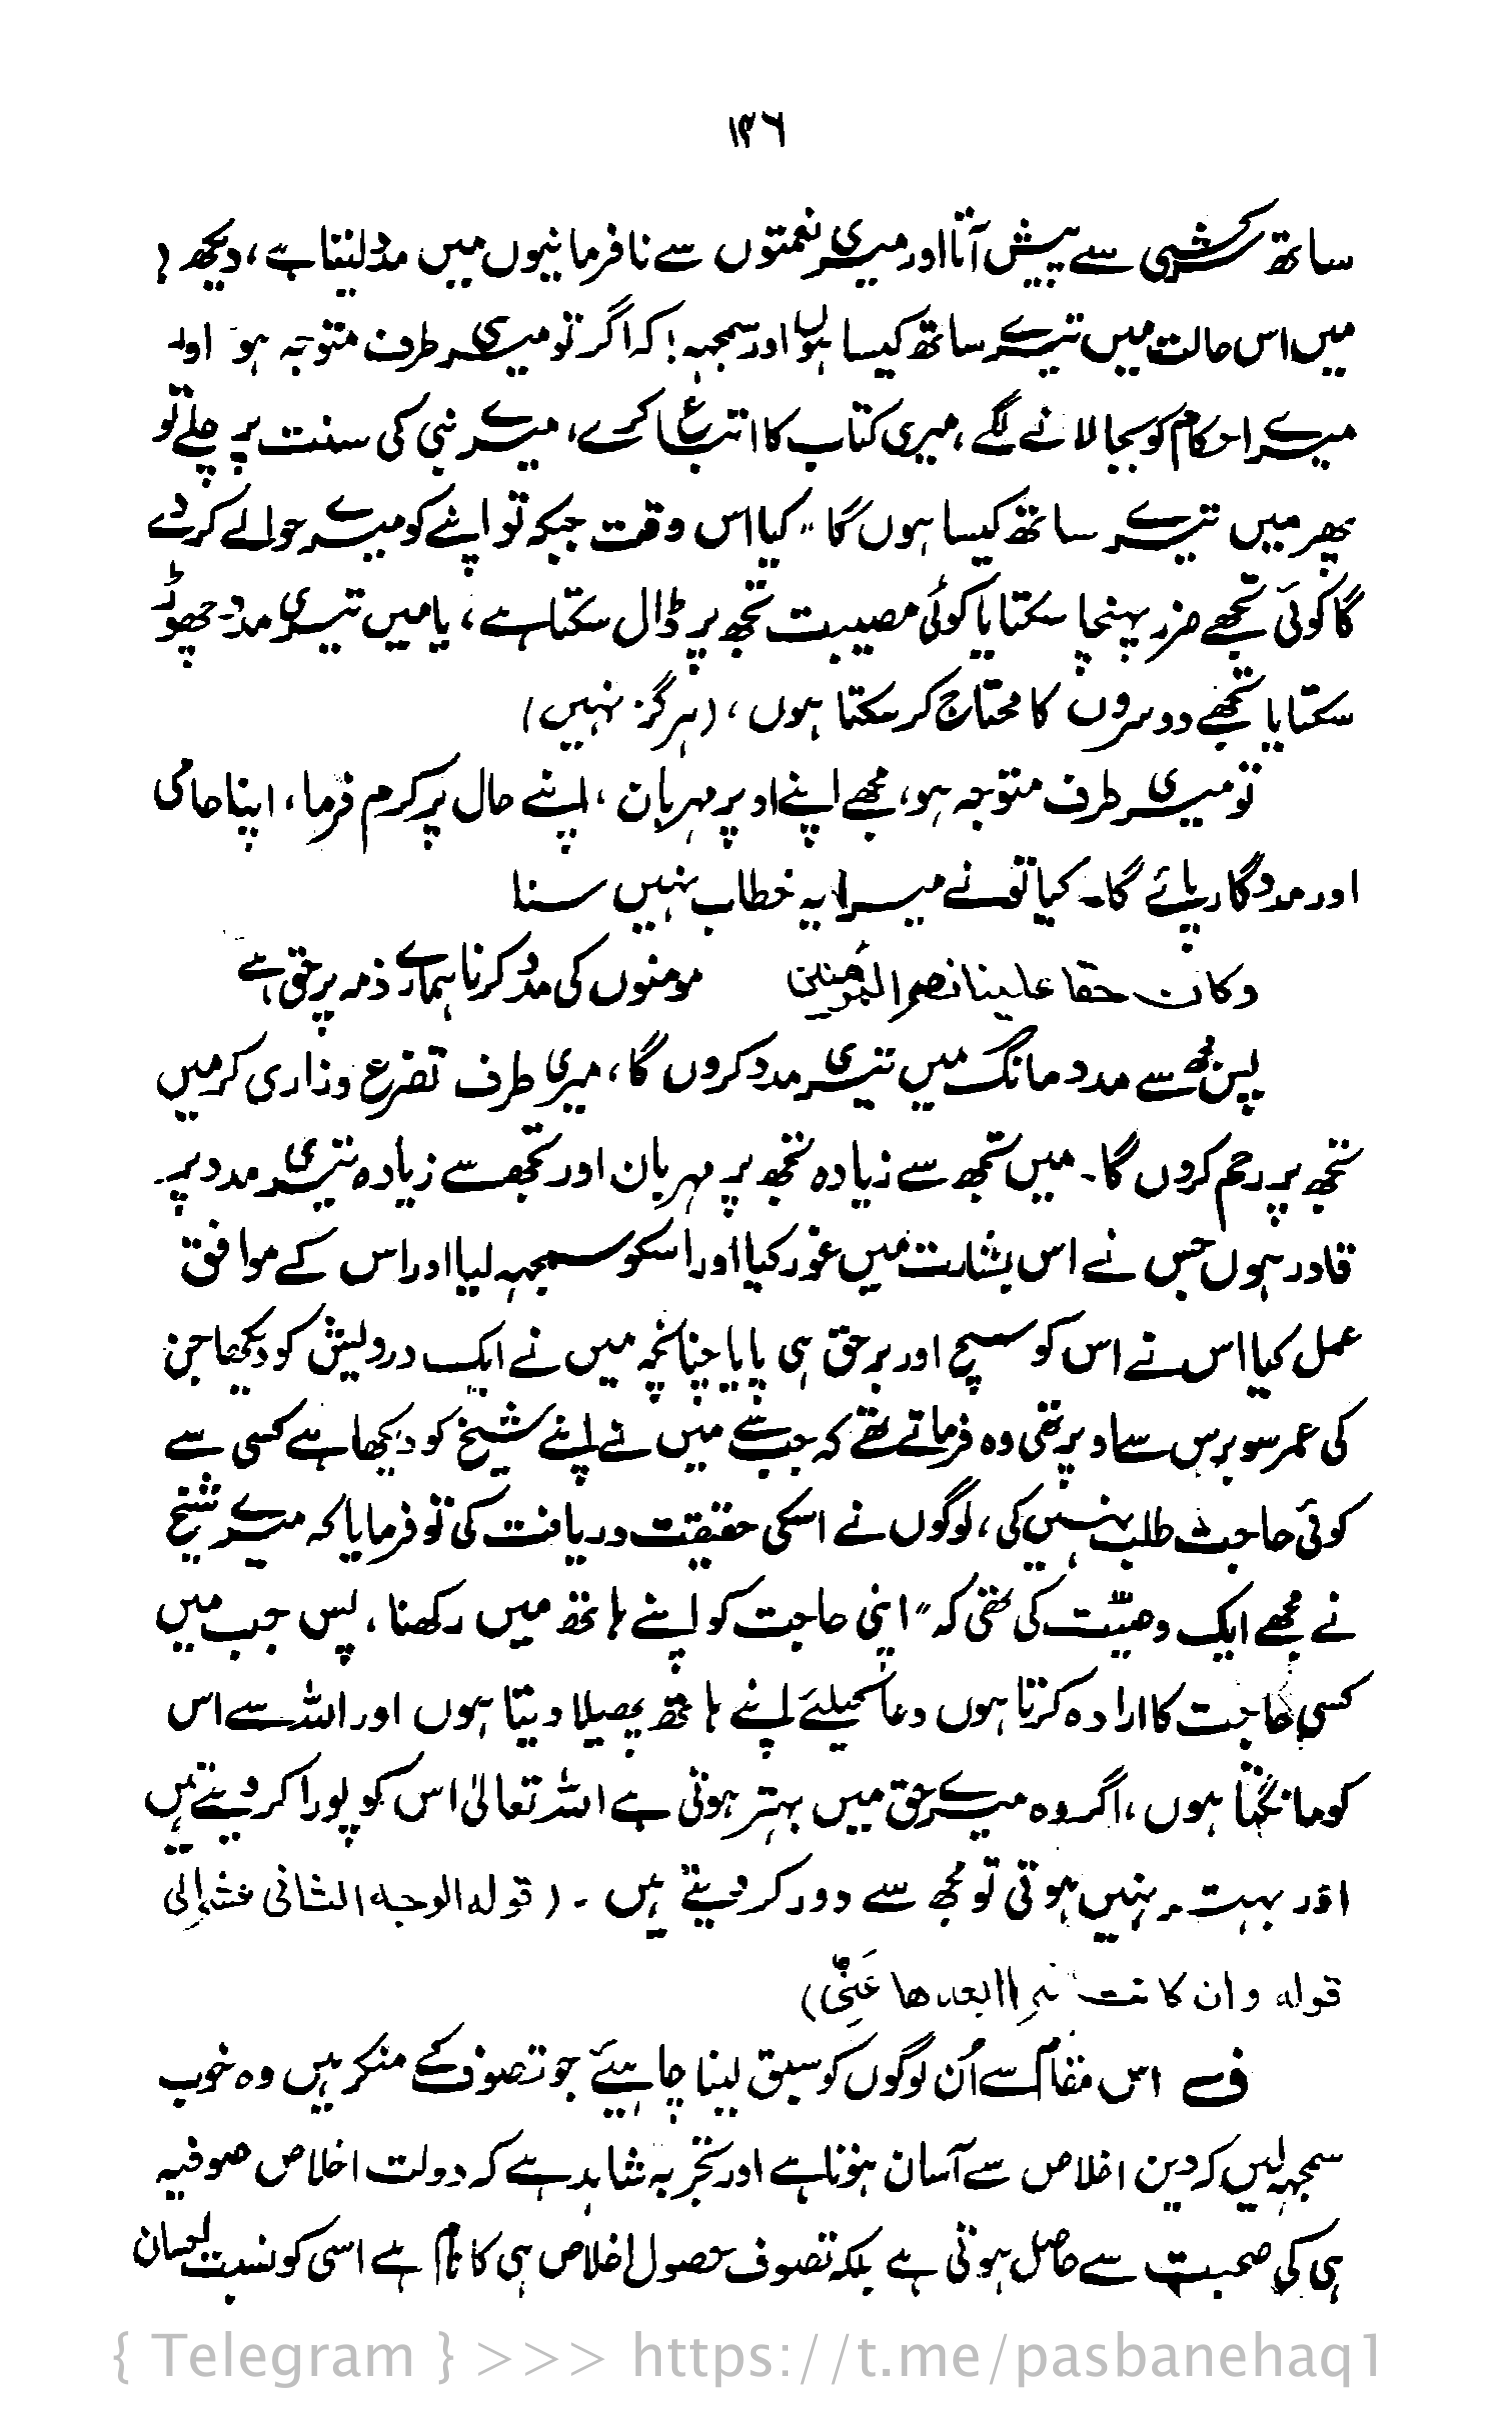 ۱۳۶
ساتھ سرکشی سے پیش آتا اور میری نعمتوں سے نافرمانیوں میں مدد لیتا ہے، دیکھ!
میں اس حالت میں تیرے ساتھ کیسا ہوں اور سمجہہ! کہ اگر تو میری طرف متوجہ ہو اور
میرے احکام کو بجا لانے لگے، میری کتاب کا اتباع کرے، میرے نبی کی سنت پر چلے تو
پھر میں تیرے ساتھ کیسا ہوں گا" کیا اس وقت جبکہ تو اپنے کو میرے حوالے کر دے
گا کوئی تجھے ضرر پہنچا سکتا یا کوئی مصیبت تجھ پر ڈال سکتا ہے، یا میں تیری مدد چھوڑ
سکتا یا تجھے دوسروں کا محتاج کر سکتا ہوں، (ہرگز نہیں)
تو میری طرف متوجہ ہو، مجھے اپنے اوپر مہربان، اپنے حال پر کرم فرما، اپنا حامی
اور مددگار پائے گا۔ کیا تو نے میرا یہ خطاب نہیں سنا
وكان حقا علينا نصر المؤمنين مومنوں کی مدد کرنا ہمارے ذمہ پر حق ہے
پس مجھ سے مدد مانگ میں تیری مدد کروں گا، میری طرف تضرع وزاری کر میں
تجھ پر رحم کروں گا۔ میں تجھ سے زیادہ تجھ پر مہربان اور تجھ سے زیادہ تیری مدد پر
قادر ہوں جس نے اس بشارت میں غور کیا اور اسکو سمجہہ لیا اور اس کے موافق
عمل کیا اس نے اس کو صحیح اور برحق ہی پایا چنانچہ میں نے ایک درویش کو دیکھا جن
کی عمر سو برس سے اوپر تھی وہ فرماتے تھے کہ جب سے میں نے اپنے شیخ کو دیکھا ہے کسی سے
کوئی حاجت طلب نہیں کی، لوگوں نے اسکی حقیقت دریافت کی تو فرمایا کہ میرے شیخ
نے مجھے ایک وصیّت کی تھی کہ" اپنی حاجت کو اپنے ہاتھ میں رکھنا، پس جب میں
کسی حاجت کا ارادہ کرتا ہوں دعا کیلئے اپنے ہاتھ پھیلا دیتا ہوں اور اللہ سے اس
کو مانگتا ہوں، اگر وہ میرے حق میں بہتر ہوتی ہے اللہ تعالیٰ اس کو پورا کر دیتے ہیں
اور بہتر نہیں ہوتی تو مجھ سے دور کر دیتے ہیں ۔ (قوله الوجه الثانی عشر الی
قوله وان كانت شرا ابعدها عَنِّی)
ف اس مقام سے اُن لوگوں کو سبق لینا چاہیئے جو تصوف کے منکر ہیں وہ خوب
سمجہہ لیں کہ دین اخلاص سے آسان ہوتا ہے اور تجربہ شاہد ہے کہ دولت اخلاص صوفیہ
ہی کی صحبت سے حاصل ہوتی ہے بلکہ تصوف حصول اخلاص ہی کا نام ہے اسی کو نسبت احسان
{ Telegram } >>> https://t.me/pasbanehaq1